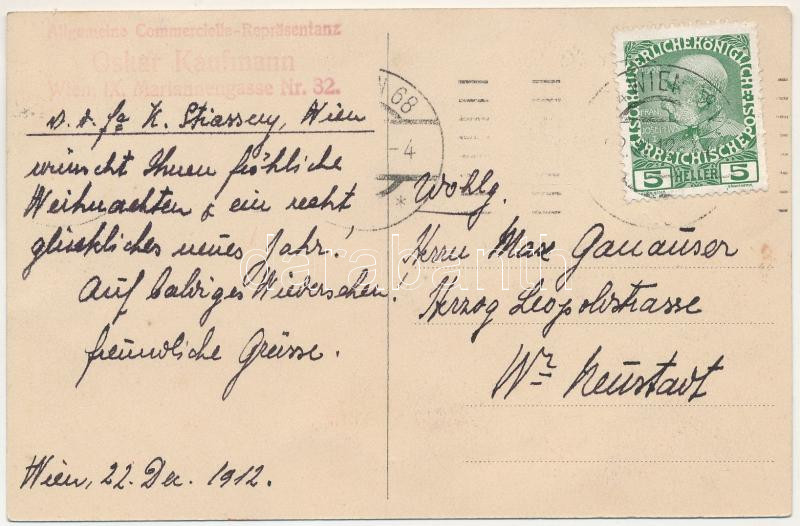 Allgemeine Commercielle-Repräsentanz
Oskar Kaufmann
Wien, IX. Mariannengasse Nr. 32.
v. d. Fa K. Stiassny, Wien
wünscht Ihnen fröhliche
Weihnachten & ein recht
glückliches neues Jahr!
Auf baldiges Wiedersehen!
freundliche Grüsse.
Wien, 22. Dec. 1912.
WIEN 68
-4
*
KAISERLICHE KÖNIGLICHE
ÖSTERREICHISCHE POST
5 HELLER 5
Wohlg.
Herrn Max Ganauser
Herzog Leopoldstrasse
Wr. Neustadt
darabanth